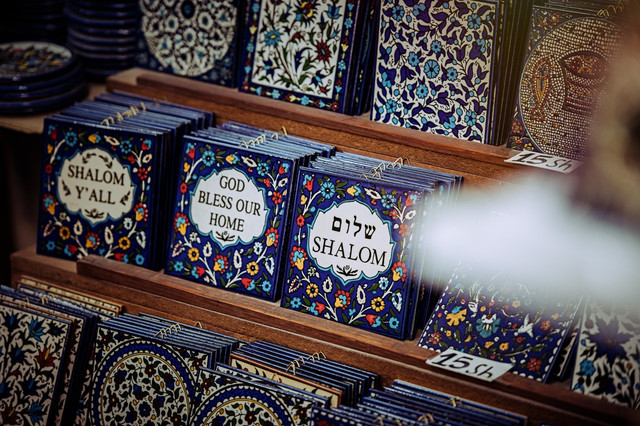 15 Sh
SHALOM
Y'ALL
GOD
BLESS OUR
HOME
שלום
SHALOM
15 Sh